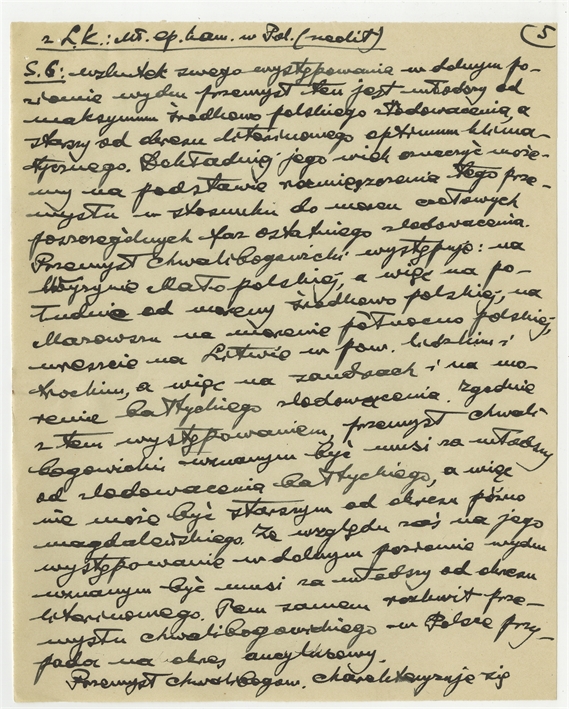 z L.K.: Mł. ep. kam. w Pol. (neolit) 5
S.6: wskutek swego występowania w dolnym po-
ziomie wydm przemysł ten jest młodszy od
maksymum środkowo polskiego zlodowacenia, a
starszy od okresu litorinowego optimum klima-
tycznego. Dokładniej jego wiek oznaczyć może-
my na podstawie rozmieszczenia tego prze-
mysłu w stosunku do moren czołowych
poszczególnych faz ostatniego zlodowacenia.
Przemysł chwalibogowicki występuje: na
Wyżynie Małopolskiej, a więc na po-
łudnie od moreny środkowo polskiej, na
Mazowszu na morenie północno polskiej,
wreszcie na Litwie w pow. lidzkim i
trockim, a więc na zandrach i na mo-
renie bałtyckiego zlodowacenia. Zgodnie
z tem występowaniem, przemysł chwali-
bogowicki uznanym być musi za młodszy
od zlodowacenia bałtyckiego, a więc
nie może być starszym od okresu późno
magdaleńskiego. Ze względu zaś na jego
występowanie w dolnym poziomie wydm
uznanym być musi za młodszy od okresu
litorinowego. Tem samem rozkwit prze-
mysłu chwalibogowickiego w Polsce przy-
pada na okres ancylusowy.
Przemysł chwalibogow. charakteryzuje się